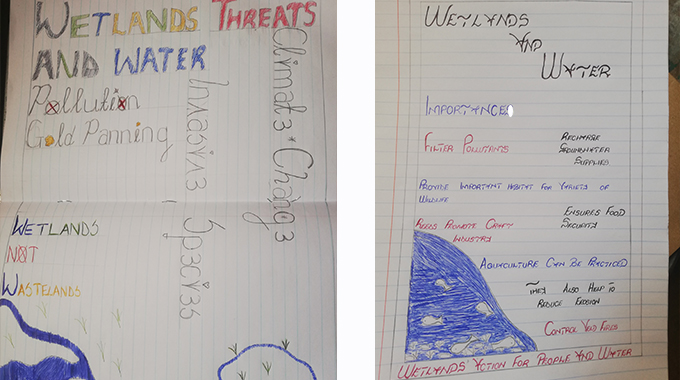 WETLANDS THREATS
AND WATER
Pollution
Gold Panning
Invasive Species
Climate Change
WETLANDS
NOT
WASTELANDS
WETLANDS
AND
WATER
IMPORTANCES
FILTER POLLUTANTS
RECHARGE
GROUNDWATER
SUPPLIES.
PROVIDE IMPORTANT HABITAT FOR VARIETY OF
WILDLIFE
ENSURES FOOD
SECURITY
REEDS PROMOTE CRAFT
INDUSTRY
AQUACULTURE CAN BE PRACTICED
THEY ALSO HELP TO
REDUCE EROSION
CONTROL VELD FIRES
WETLANDS ACTION FOR PEOPLE AND WATER